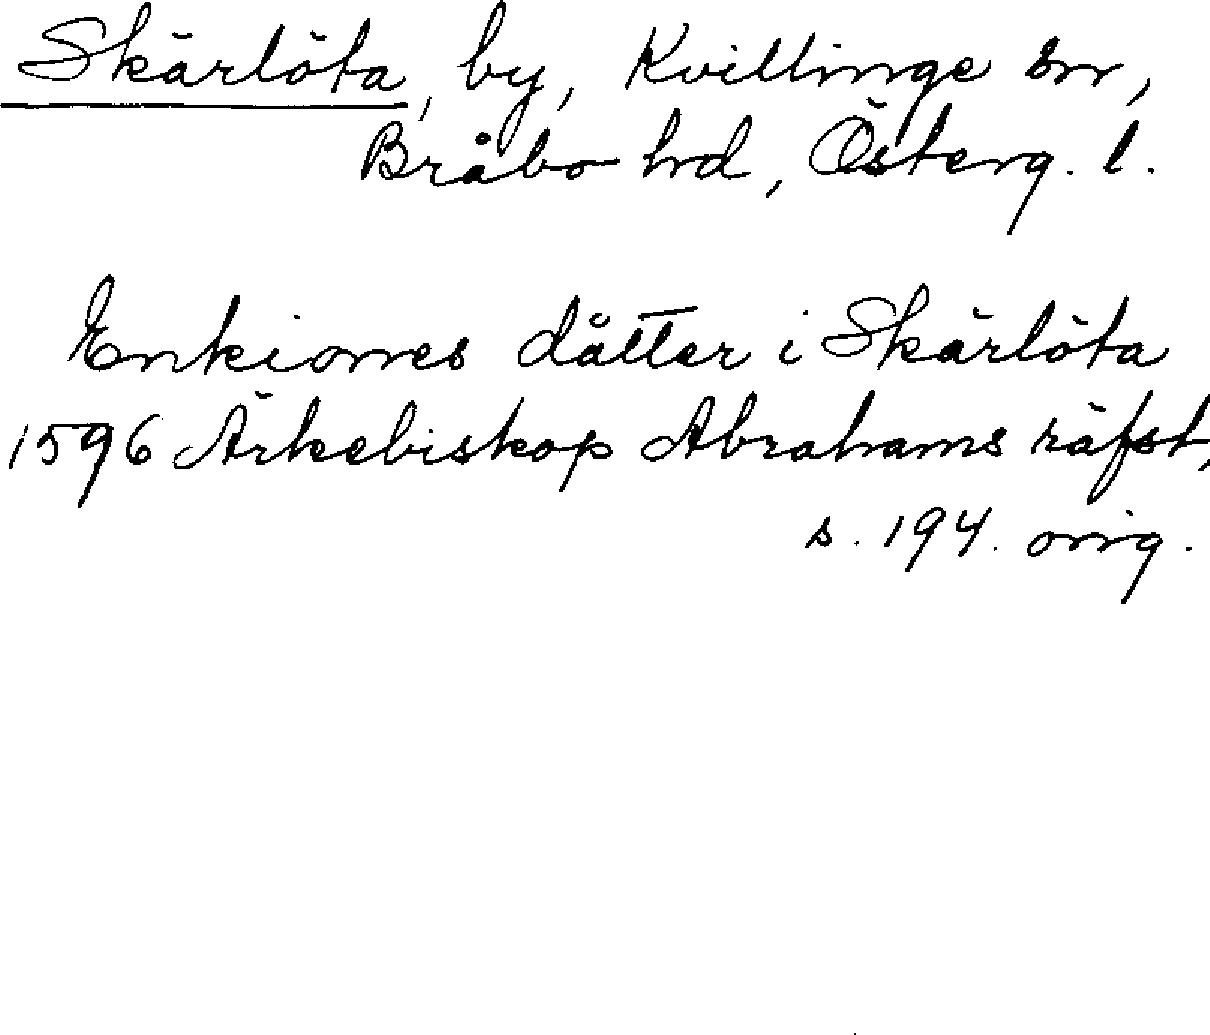 Skärlöta, by, Kvillinge sn,
Bråbo hd, Österg. l.
Enkiones dåtter i Skärlöta
1596 Ärkebiskop Abrahams räfst,
s. 194. orig.